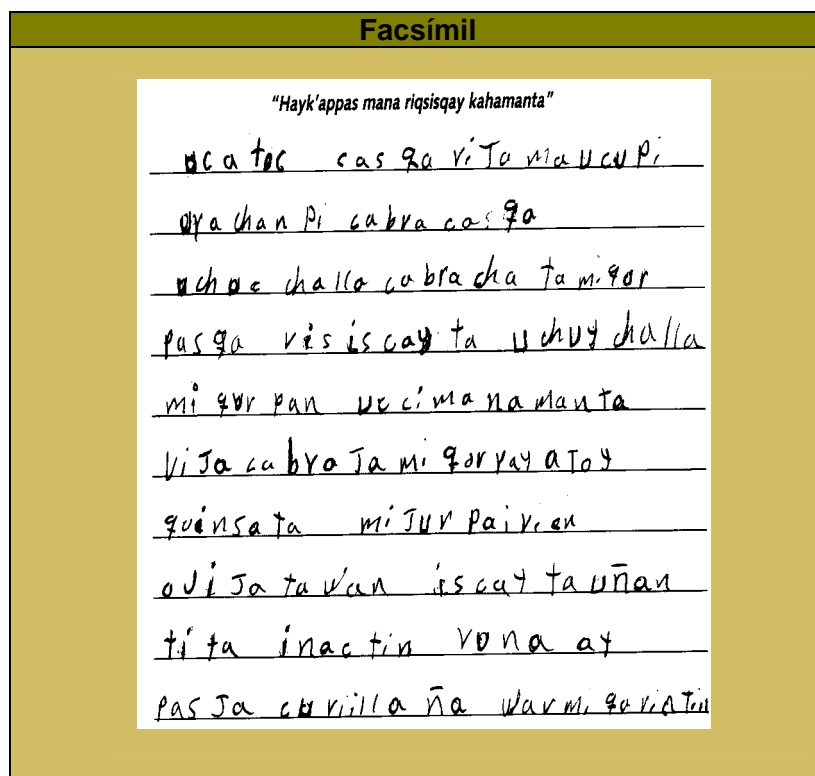 Facsímil
"Hayk'appas mana riqsisqay kahamanta"
ucatoc casqa viJamaucupi
oyachanpi cabracasqa
uchuc challa cabracha tamiqor
pasqa vis iscayta uchuychalla
miqur pan uccimanamanta
viJa cabraJa miqorray aToy
quinsata miJur pairien
oviJatawan iscay tauñan
tita inactin vuna ay
pasJa curiilla ña warmiqariatin